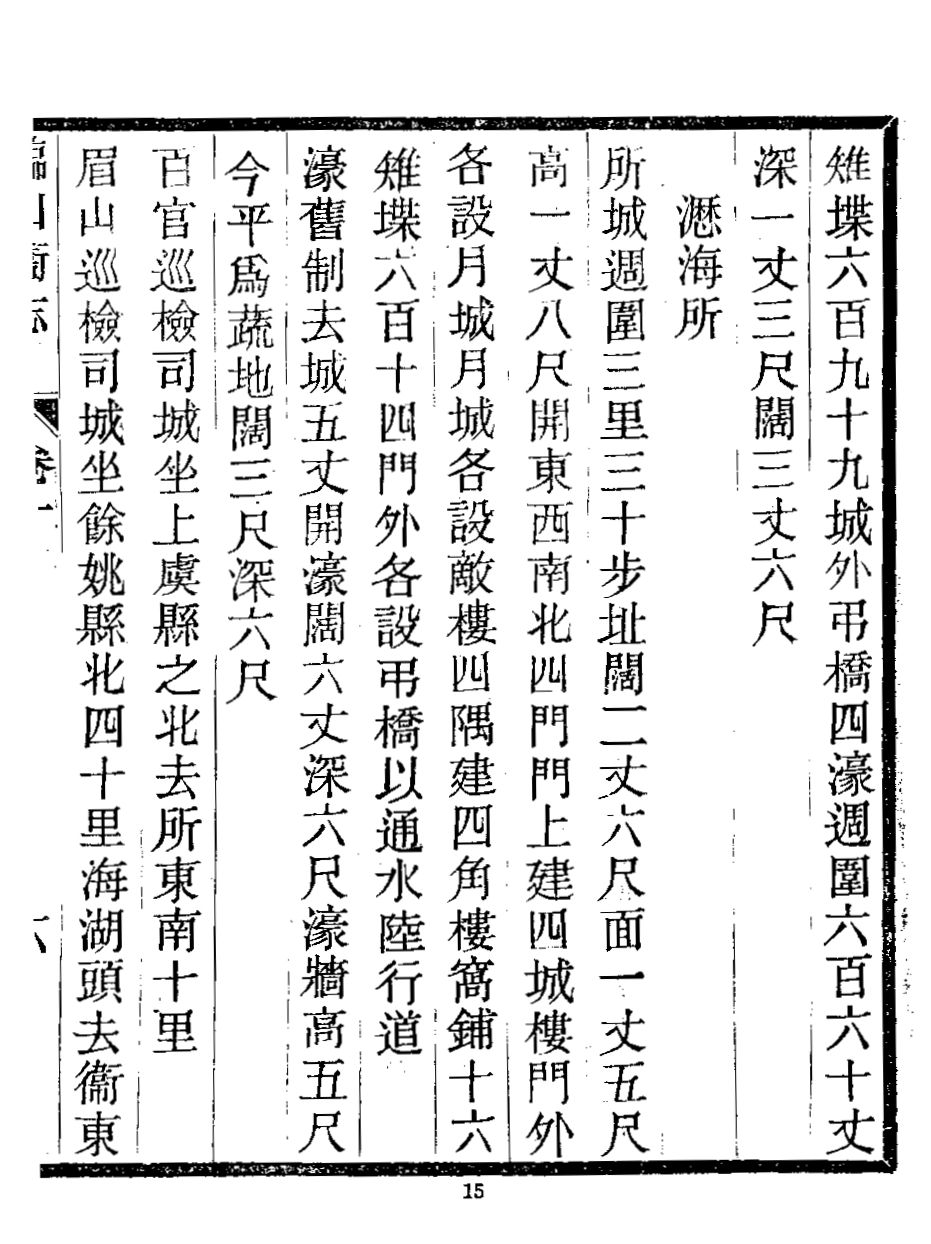 雉堞六百九十九城外弔橋四濠週圍六百六十丈
深一丈三尺闊三丈六尺
瀝海所
所城週圍三里三十步址闊二丈六尺面一丈五尺
高一丈八尺開東西南北四門門上建四城樓門外
各設月城月城各設敵樓四隅建四角樓窩鋪十六
雉堞六百十四門外各設弔橋以通水陸行道
濠舊制去城五丈開濠闊六丈深六尺濠牆高五尺
今平爲蔬地闊三尺深六尺
百官巡檢司城坐上虞縣之北去所東南十里
眉山巡檢司城坐餘姚縣北四十里海湖頭去衞東
臨山衞志
卷一
六
15